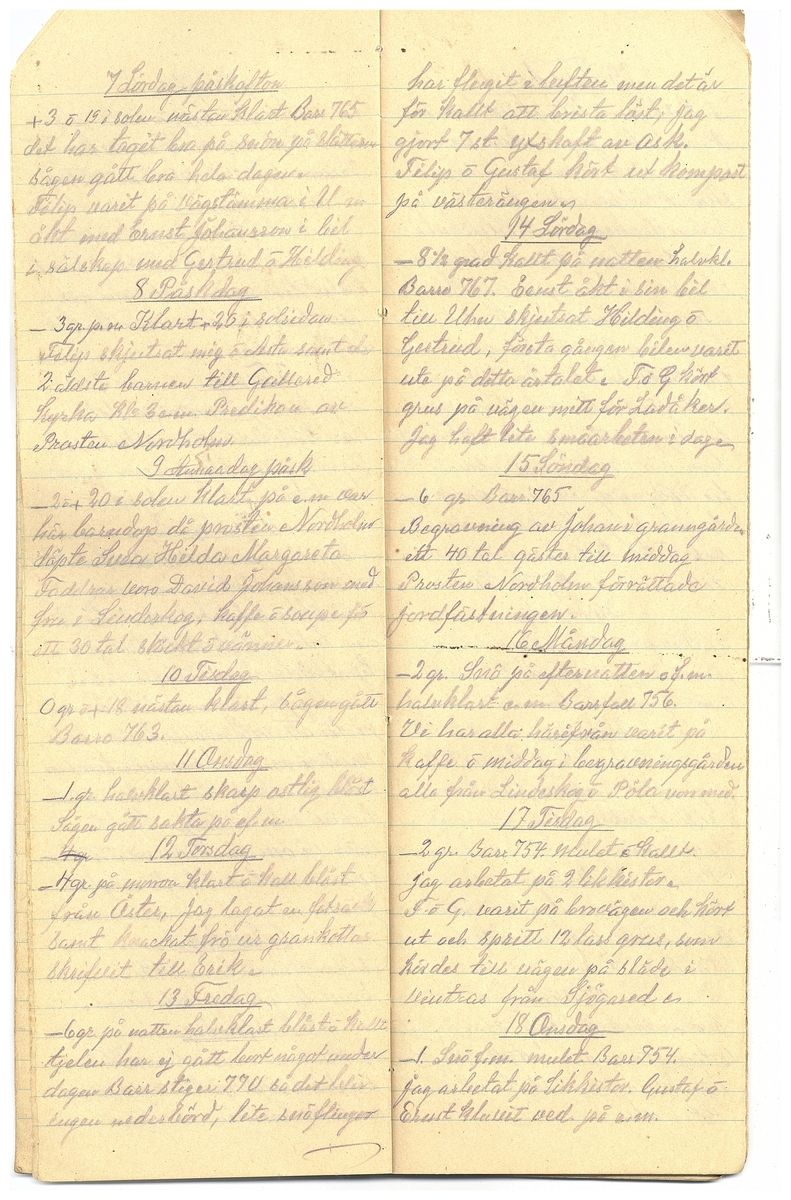 7 Lördag påskafton
+3 ö 19 i solen nästan klart Barr 765
det har tagét bra på snön på slätten
sågen gått bra hela dagen.
Filip varit på vägstämma i U
åkt med Ernst Johansson i bil
i sälskap med Gertrud ö Hilding
8 Påskdag
– 3 gr. p.m Klart + 25 i solsidan
Filip skjutsat mig ö samt
2 äldste barnen till Gällared
Kyrka kl 3 e.m. Predikan av
Prosten Nordholm
9 Annandag påsk
– 2 ö + 20 i solen klart, på e.m var
här barndop då prosten Nordholm
döpte Hilda Margareta
Faddrar voro David Johansson med
fru i Lindeskog, kaffe ö soupe för
ett 30 tal släckt ö vänner.
10 Tisdag
0 gr ö + 18 nästan klart, sågen gått
Barro 763.
11 Onsdag
– 1. gr. halvklart skarp ostlig blåst
Sågen gått sakta på ef.m.
12 Torsdag
– 4 gr. på morron klart ö kall blåst
från Öster, Jag lagat en
samt knachat frö ur grankottar
skrifvit till Erik.
13 Fredag
– 6 gr. på natten halvklast blåst ö kallt
tjelen har ej gått bort något under
dagen Barr stiger 770 så det blir
ingen nederbörd, lite snöflingor
har flugit i luften men det är
för kallt att brista löst, jag
gjort 7 st. yxskaft av ask.
Filip ö Gustaf kört ut kompost
på västerängen
14 Lördag
– 8 1/2 grad kallt på natten halvkl.
Barro 767. Ernst åkt i sin bil
till Uhn skjutsat Hilding ö
Gertrud, första gången bilen varit
ute på detta årtalet. F. ö G kört
grus på vägen mitt för Ladåker.
Jag haft lite småarbeten i dag
15 Söndag
– 6 gr Barr. 765
Begravning av Johan i granngården
ett 40 tal gäster till middag
Prosten Nordholm förrättade
jordfästningen.
16 Måndag
– 2 gr. Snö på efternatten ö f.m.
halvklart e.m. Barrfall 756.
Vi har alla härifrån varit på
Kaffe ö middag i begravningsgården
alla från Lindeskog ö Påla von med.
17 Tisdag
– 2 gr. Barr 754. mulet ö kallt.
jag arbetat på 2 likkistor.
F ö G. varit på brovägen och kört
ut och spritt 12 lass grus, som
kördes till vägen på släde i
vintras från Sjögared
18 Onsdag
– 1. Snö f.m. mulet Barr 754.
jag arbetat på likkistor. Gustaf ö
Ernst kluvit ved på e.m.